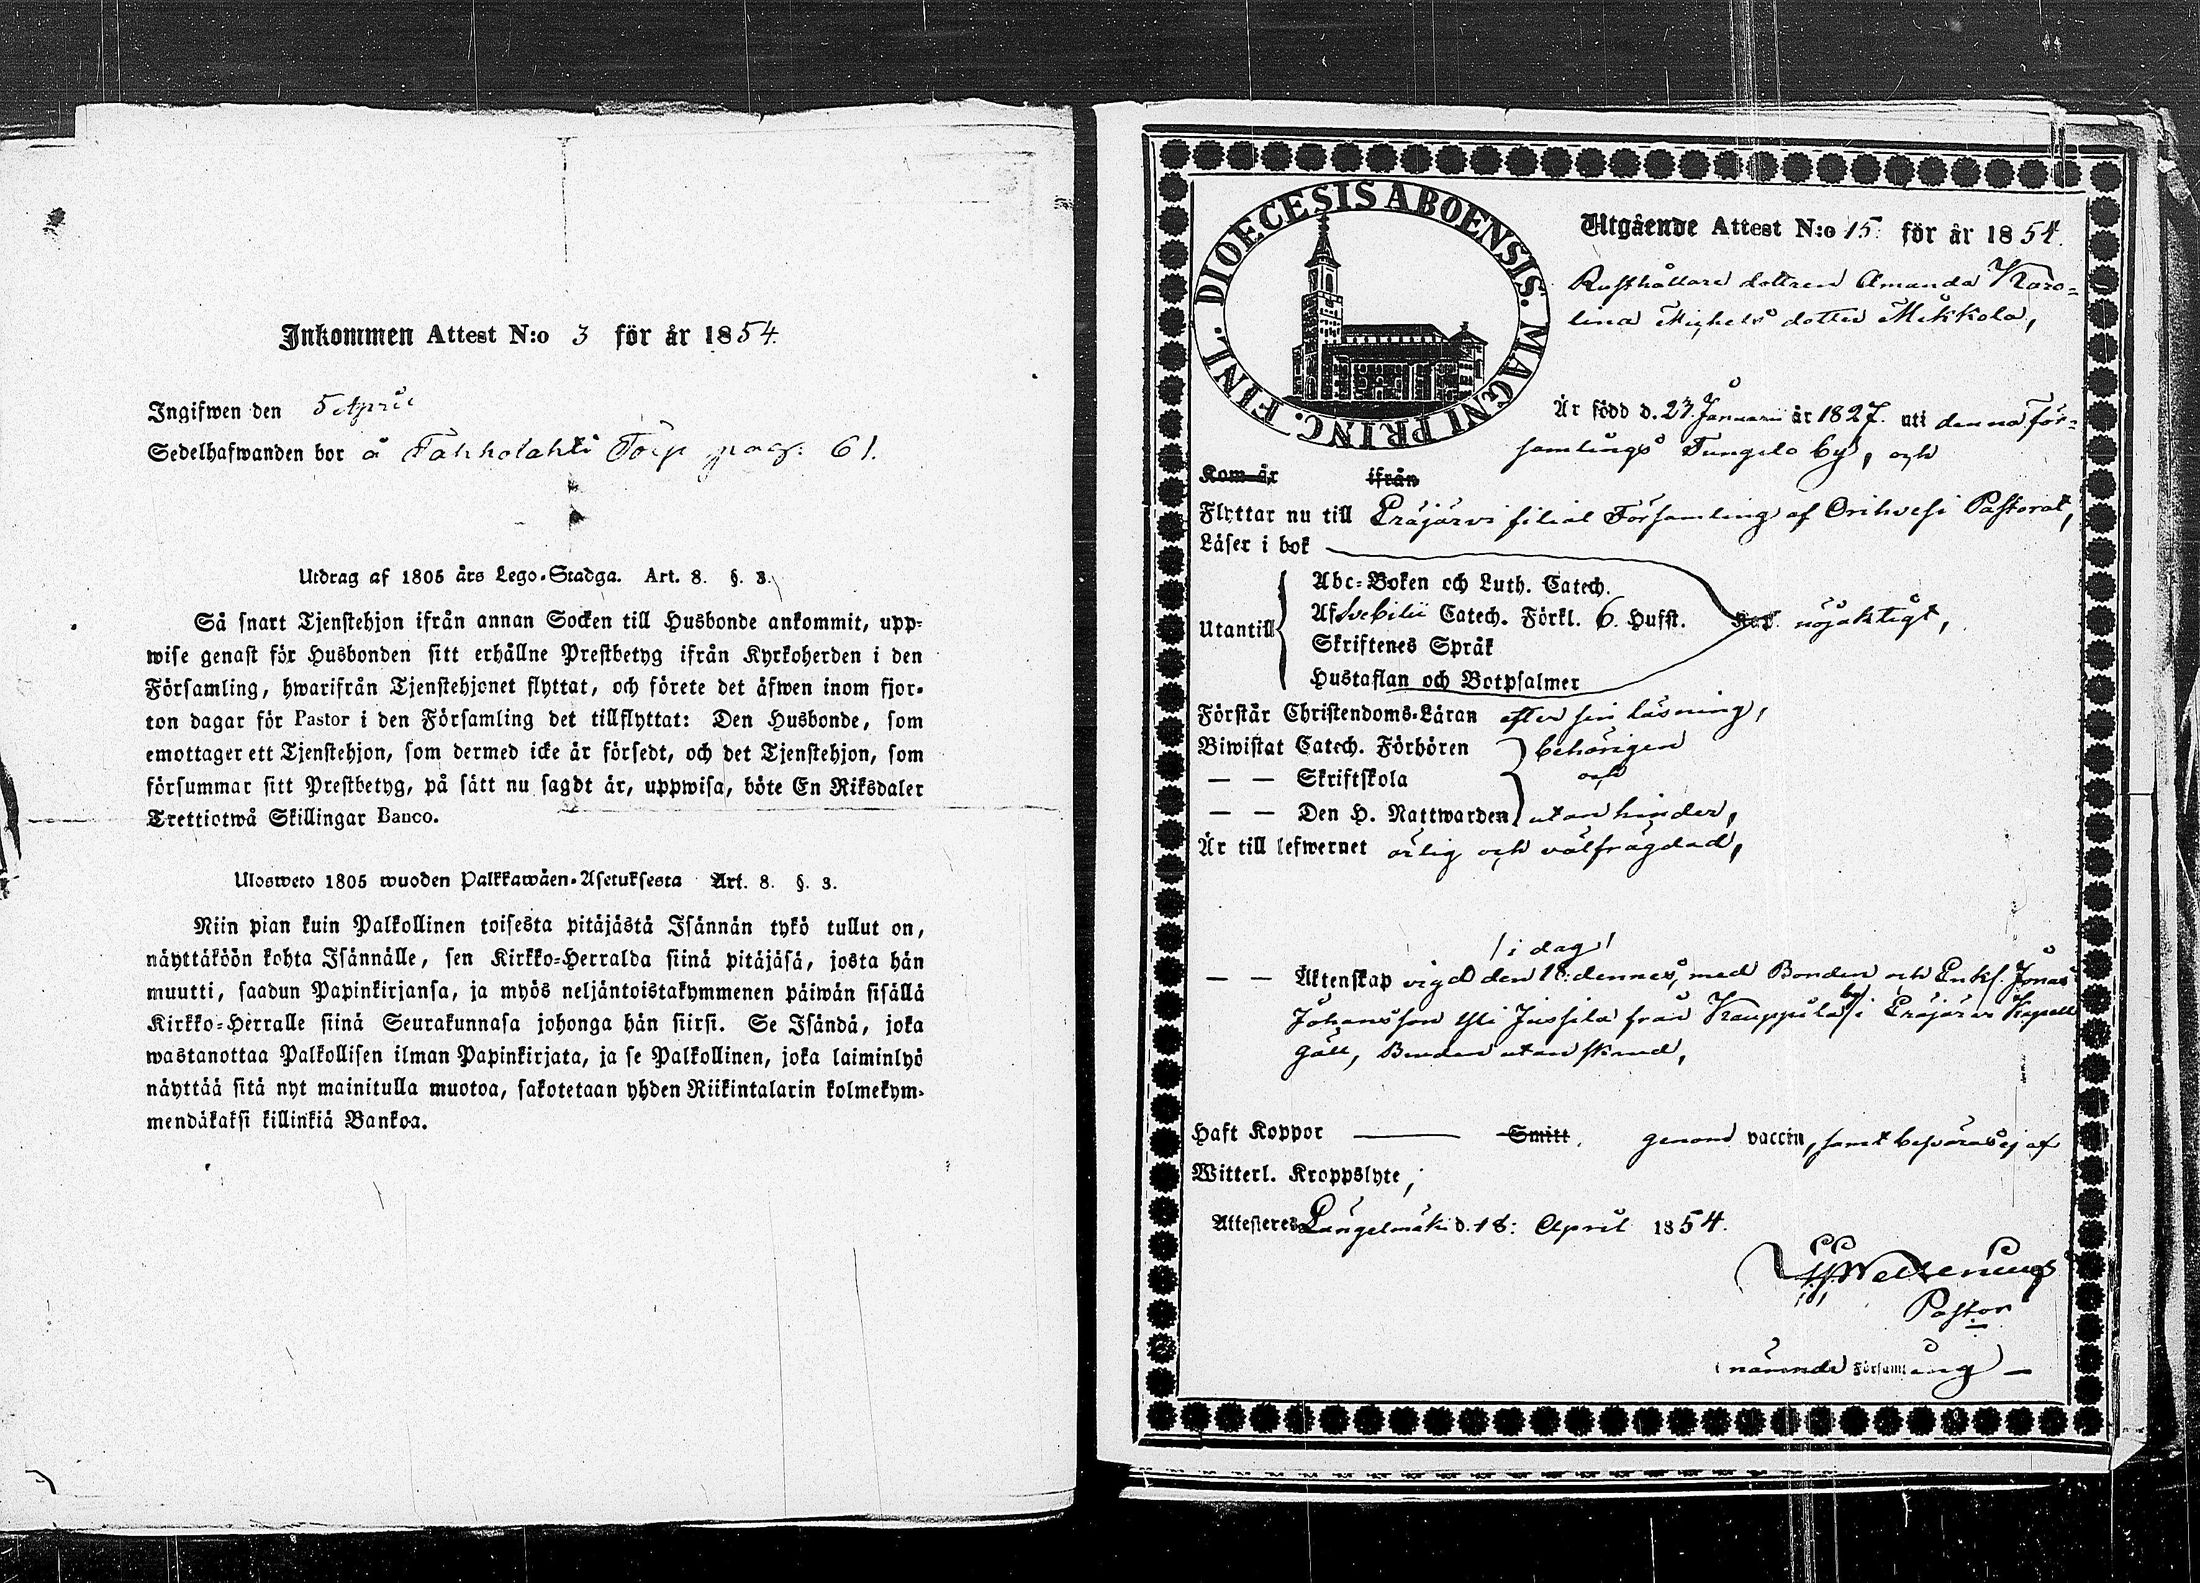 Inkommen Attest N:o 3 för år 1854.
Ingifwen den 5 April
Sedelhafwanden bor å Tahkolahti Torp pag: 61.
Utdrag af 1805 års Lego-Stadga. Art. 8. §. 3.
Så snart Tjenstehjon ifrån annan Socken till Husbonde ankommit, upp-
wise genast för Husbonden sitt erhållne Prestbetyg ifrån Kyrkoherden i den
Församling, hwarifrån Tjenstehjonet flyttat, och förete det äfwen inom fjor-
ton dagar för Pastor i den Församling det tillflyttat: Den Husbonde, som
emottager ett Tjenstehjon, som dermed icke är försedt, och det Tjenstehjon, som
försummar sitt Prestbetyg, på sätt nu sagdt är, uppwisa, böte En Riksdaler
Trettiotwå Skillingar Banco.
Ulosweto 1805 wuoden Palkkawäen-Asetuksesta Art. 8. §. 3.
Niin pian kuin Palkollinen toisesta pitäjästä Isännän tykö tullut on,
näyttäköön kohta Isännälle, sen Kirkko-Herralda siinä pitäjäsä, josta hän
muutti, saadun Papinkirjansa, ja myös neljäntoistakymmenen päiwän sisällä
Kirkko-Herralle siinä Seurakunnasa johonga hän siirsi. Se Isändä, joka
wastanottaa Palkollisen ilman Papinkirjata, ja se Palkollinen, joka laiminlyö
näyttää sitä nyt mainitulla muotoa, sakotetaan yhden Riikintalarin kolmekym-
mendäkaksi killinkiä Bankoa.
DIOECESIS ABOENSIS. MAGNI PRINC. FINL.
Utgående Attest N:o 15. för år 1854.
Rusthållare dottren Amanda Karo-
lina Michels dotter Mikkola,
Är född d. 27. Januarii år 1827. uti denna för-
samlings Tungelo by, och
Kom år ifrån
Flyttar nu till Eräjärvi filial Församling af Orihvesi Pastorat,
Läser i bok
Abc-Boken och Luth. Catech.
Utantill Af Svebilii Catech. Förkl. 6. Hufst. nöjaktigt,
Skriftenes Språk
Hustaflan och Botpsalmer
Förstår Christendoms-Läran efter sin läsning,
Biwistat Catech. Förhören behörigen
— — Skriftskola och
— — Den H. Nattwarden utan hinder,
Är till lefwernet ärlig och välfrägdad,
/i dag/
— — Äktenskap vigd den 18. dennes, med Bonden och Enkl. Jonas
Johansson Yli Jussila från Kauppila by i Eräjärvi Kapell
gäll, utan
Haft Koppor — Smitt. genom vaccin, samt besväras ej af
Witterl. Kroppslyte,
Attesteres Längelmäki d. 18: April 1854.
Pastor
i nämnde Församling —